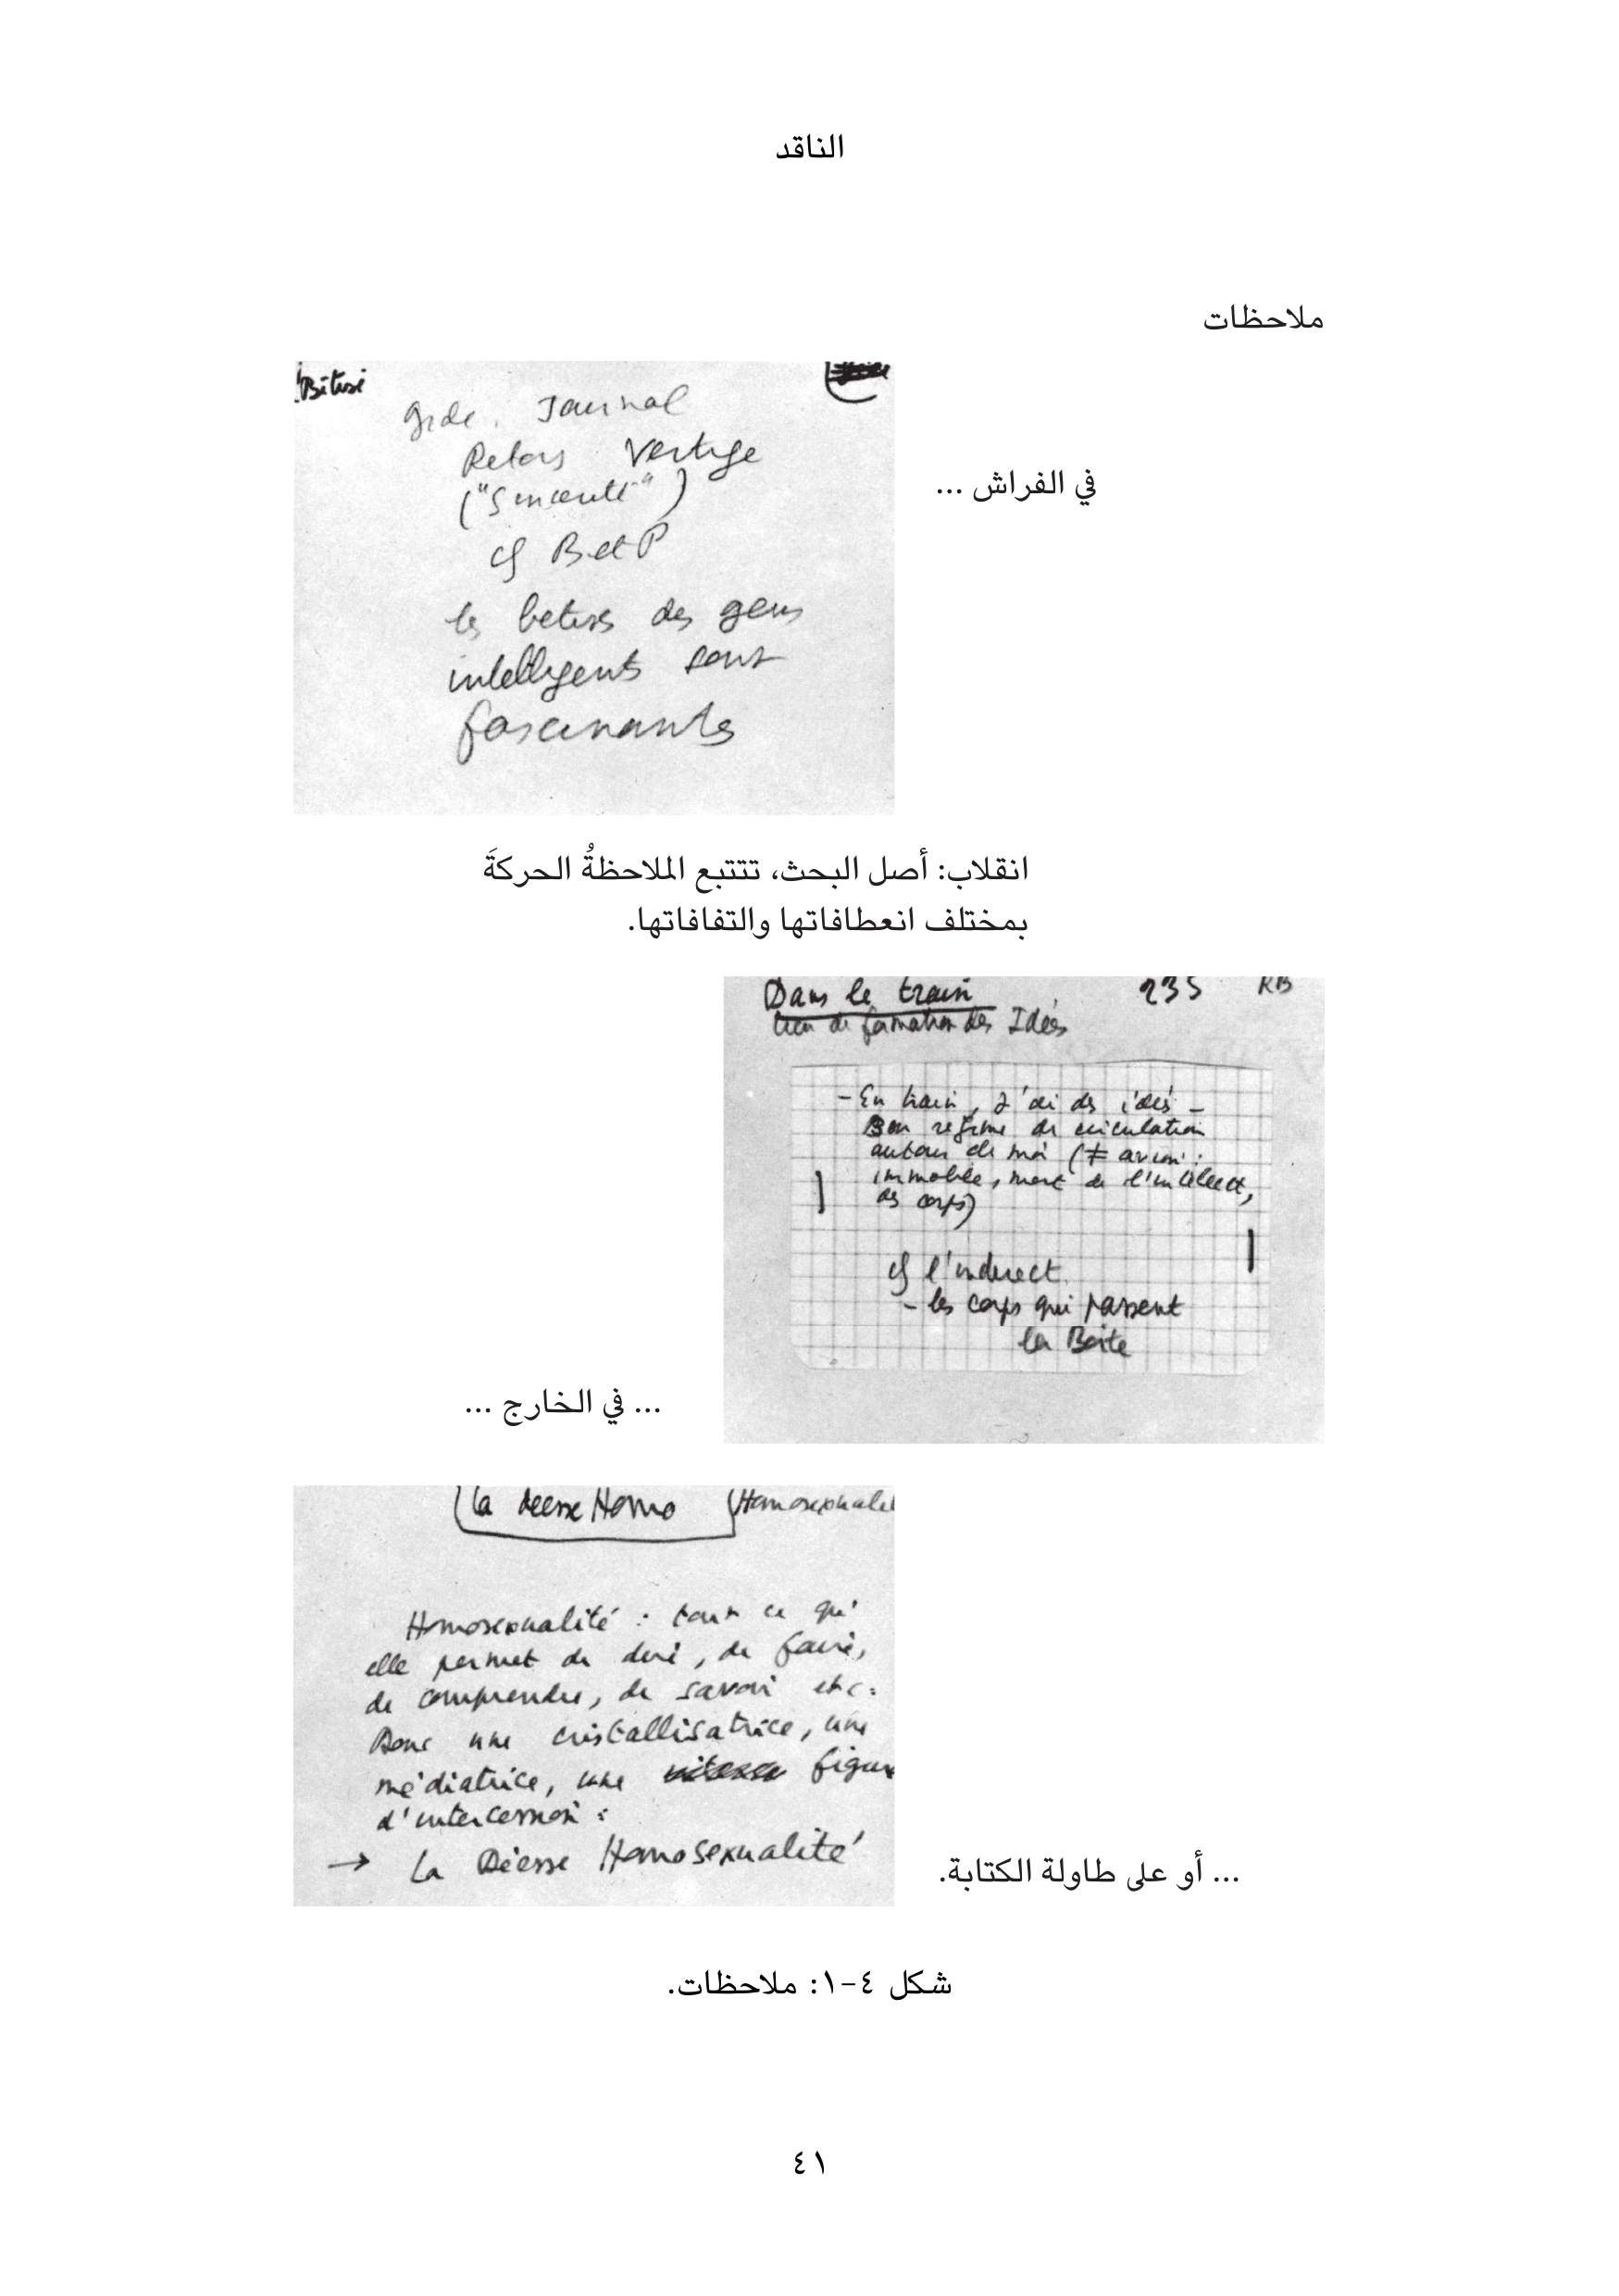 الناقد
ملاحظات
Bêtise
Gide, Journal
Retors Vertige
("Sincérité")
cf B et P
les bêtises des gens
intelligents sont
fascinants
في الفراش ...
انقلاب: أصل البحث، تتتبع الملاحظةُ الحركةَ
بمختلف انعطافاتها والتفافاتها.
Dans le train 235 RB
lieu de formation des Idées
- En train, j'ai des idées -
Bon régime de circulation
autour de moi (≠ avion :
immobile, mort de l'intellect,
des corps)
cf l'indirect
- les corps qui passent
la Boîte
... في الخارج ...
la déesse Homo Homosexualit
Homosexualité : tout ce qu'
elle permet de dire, de faire,
de comprendre, de savoir etc.
Donc une cristallisatrice, une
médiatrice, une figure
d'intercession :
→ La Déesse Homosexualité
... أو على طاولة الكتابة.
شكل ٤-١: ملاحظات.
٤١